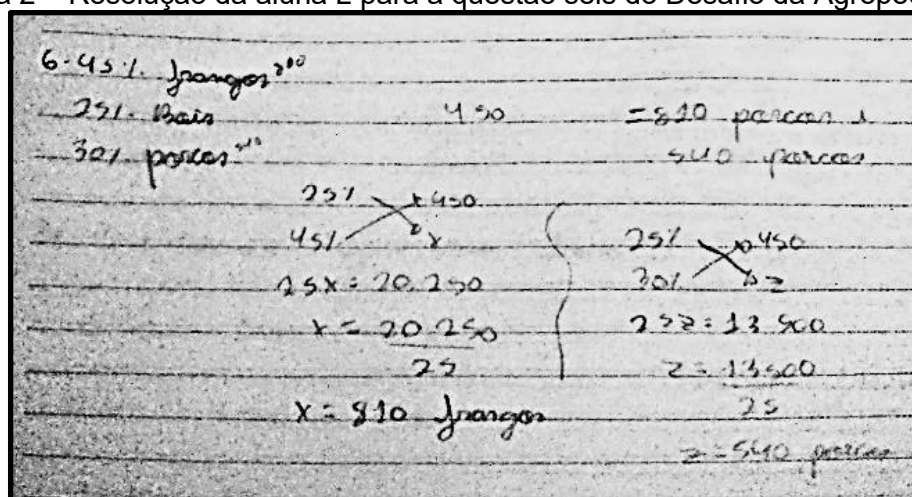 Resolução da aluna E para a questão seis do Desafio da Agropec
6. 45%. frangos
25%. Bois 450 = 810 porcos e
30% porcos 540 540 porcos
25% 450
45% x
25x = 20.250
x = 20.250
25
x = 810 frangos
25% 450
30% z
25z = 13 500
z = 13500
25
z = 540 porcos